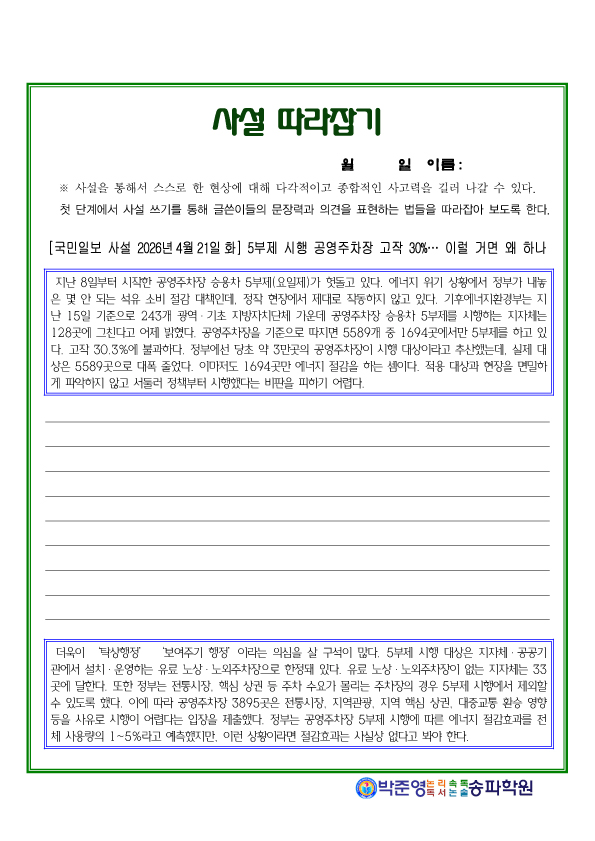 사설 따라잡기
월 일 이름:
※ 사설을 통해서 스스로 한 현상에 대해 다각적이고 종합적인 사고력을 길러 나갈 수 있다.
첫 단계에서 사설 쓰기를 통해 글쓴이들의 문장력과 의견을 표현하는 법들을 따라잡아 보도록 한다.
[국민일보 사설 2026년 4월 21일 화] 5부제 시행 공영주차장 고작 30%… 이럴 거면 왜 하나
지난 8일부터 시작한 공영주차장 승용차 5부제(요일제)가 헛돌고 있다. 에너지 위기 상황에서 정부가 내놓
은 몇 안 되는 석유 소비 절감 대책인데, 정작 현장에서 제대로 작동하지 않고 있다. 기후에너지환경부는 지
난 15일 기준으로 243개 광역·기초 지방자치단체 가운데 공영주차장 승용차 5부제를 시행하는 지자체는
128곳에 그친다고 어제 밝혔다. 공영주차장을 기준으로 따지면 5589개 중 1694곳에서만 5부제를 하고 있
다. 고작 30.3%에 불과하다. 정부에선 당초 약 3만곳의 공영주차장이 시행 대상이라고 추산했는데, 실제 대
상은 5589곳으로 대폭 줄었다. 이마저도 1694곳만 에너지 절감을 하는 셈이다. 적용 대상과 현장을 면밀하
게 파악하지 않고 서둘러 정책부터 시행했다는 비판을 피하기 어렵다.
더욱이 '탁상행정' '보여주기 행정'이라는 의심을 살 구석이 많다. 5부제 시행 대상은 지자체·공공기
관에서 설치·운영하는 유료 노상·노외주차장으로 한정돼 있다. 유료 노상·노외주차장이 없는 지자체는 33
곳에 달한다. 또한 정부는 전통시장, 핵심 상권 등 주차 수요가 몰리는 주차장의 경우 5부제 시행에서 제외할
수 있도록 했다. 이에 따라 공영주차장 3895곳은 전통시장, 지역관광, 지역 핵심 상권, 대중교통 환승 영향
등을 사유로 시행이 어렵다는 입장을 제출했다. 정부는 공영주차장 5부제 시행에 따른 에너지 절감효과를 전
체 사용량의 1~5%라고 예측했지만, 이런 상황이라면 절감효과는 사실상 없다고 봐야 한다.
박준영논리속독독서논술송파학원